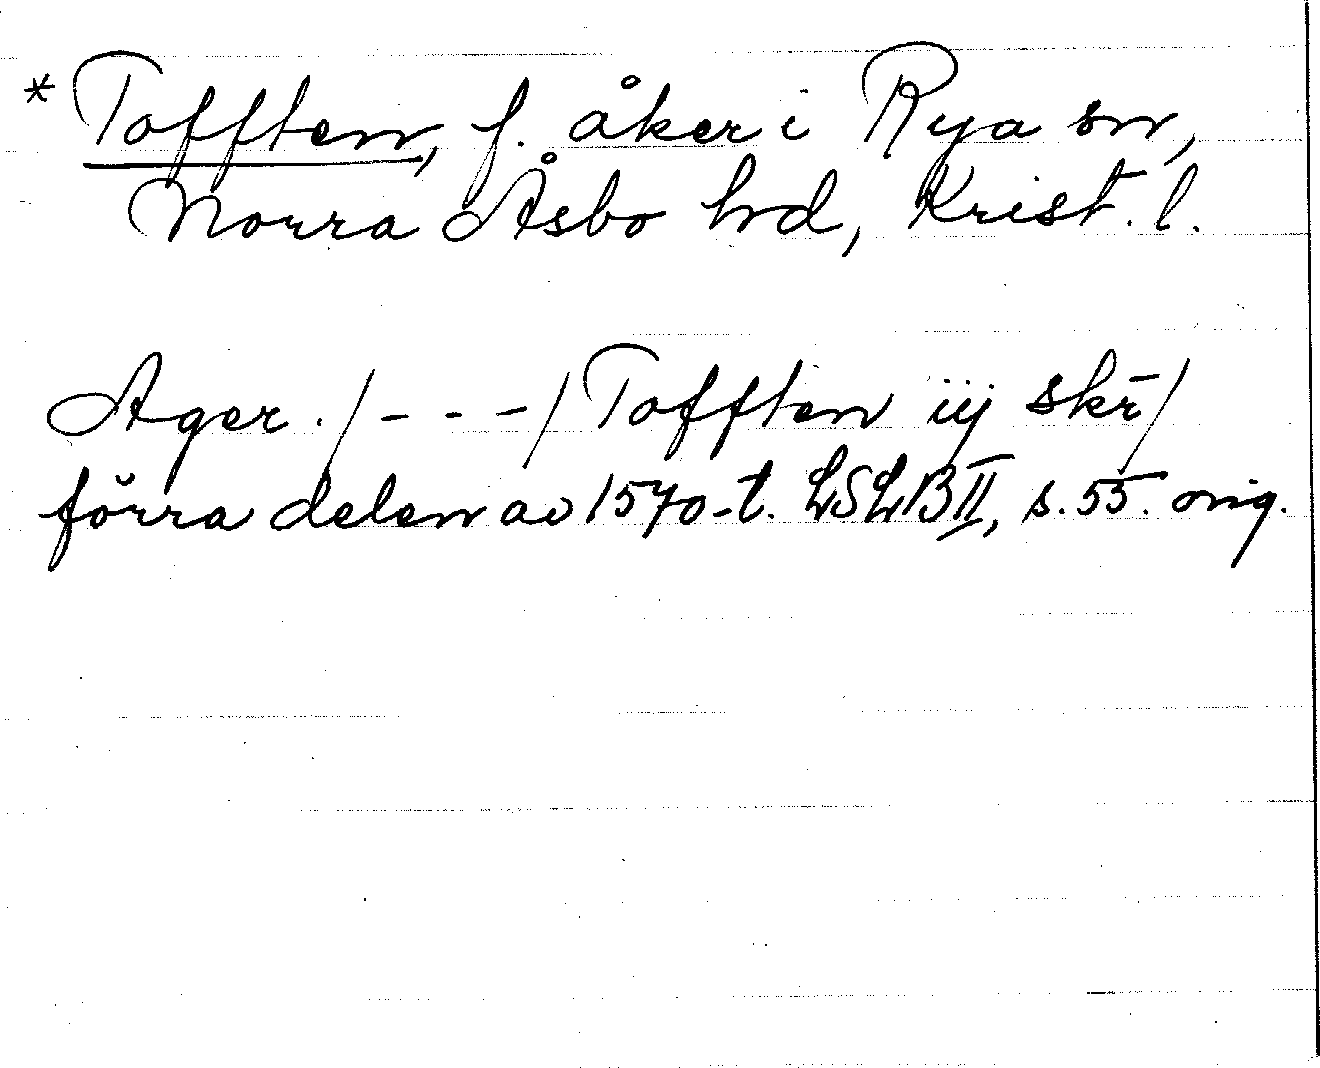 * Tofften, f. åker i Rya sn,
Norra Åsbo hd, Krist. l.
Ager. /- - -/ Tofften iij skr̄/
förra delen av 1570-t. LSLB II, s. 55. orig.